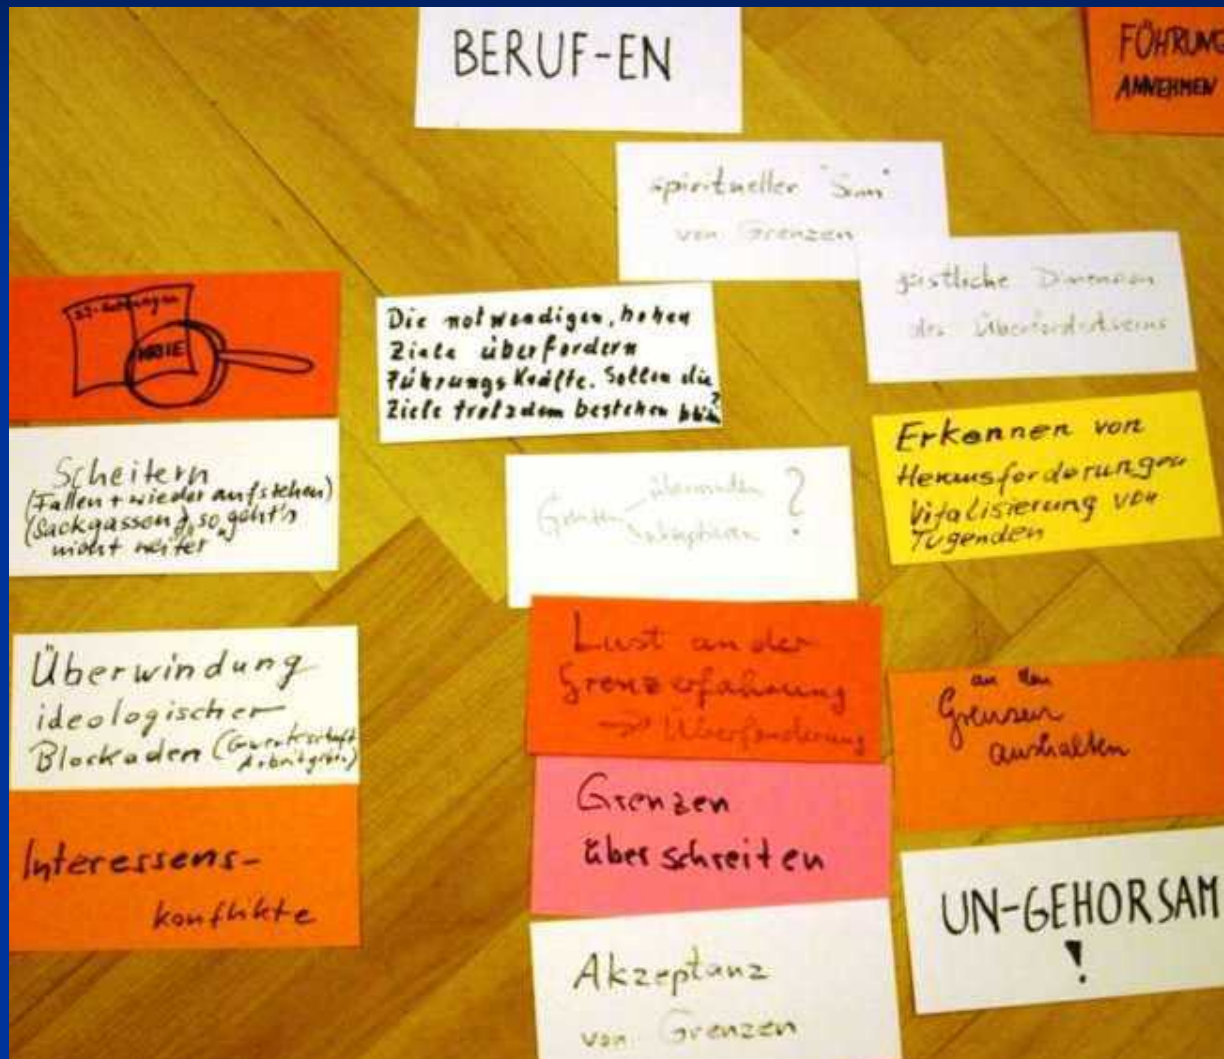 BERUF-EN
FÖHRUNG
ANNEHMEN
spiritueller "Sinn"
von Grenzen
geistliche Dimension
des Überfordertseins
Die notwendigen, hohen
Ziele überfordern
Führungs Kräfte. Sollen die
Ziele trotzdem bestehen
Scheitern
(Fallen + wieder aufstehen)
(Sackgassen, so geht's
nicht weiter"
Grenzen
überwinden
akzeptieren
?
Erkennen von
Herausforderungen
Vitalisierung von
Tugenden
Überwindung
ideologischer
Blockaden (Gewerkschaft
Lust an der
Grenzerfahrung
→ Überforderung
an den
Grenzen
aushalten
Interessens-
konflikte
Grenzen
überschreiten
UN-GEHORSAM
!
Akzeptanz
von Grenzen